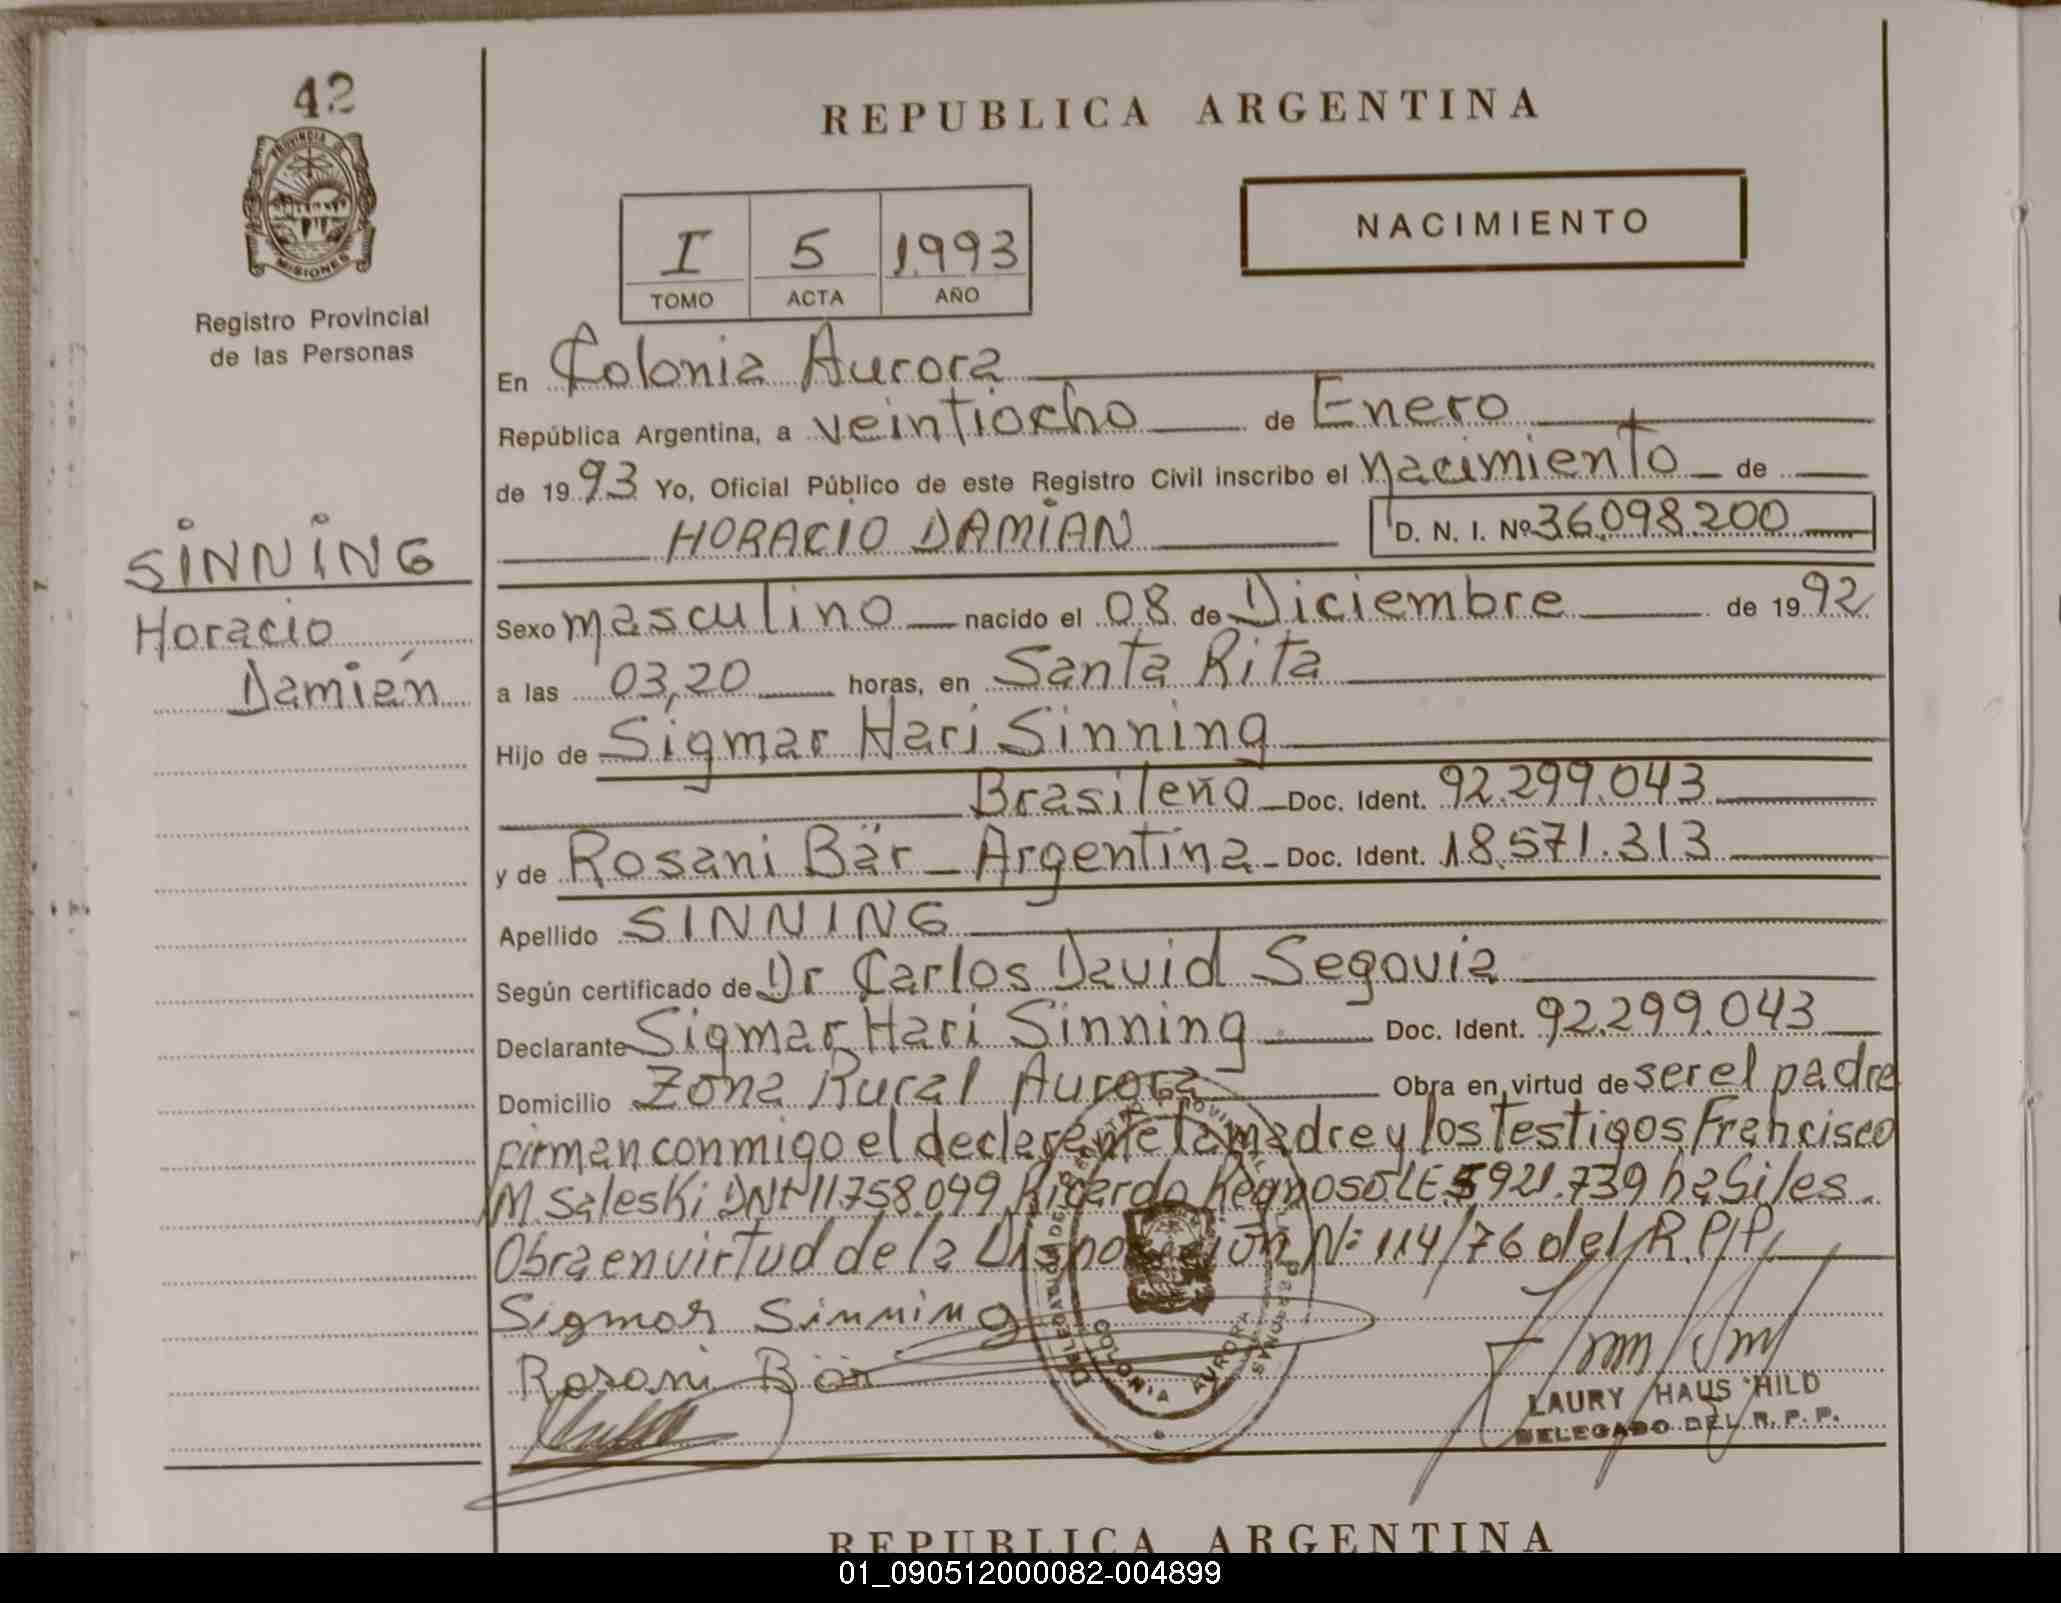 42
PROVINCIA DE
MISIONES
Registro Provincial
de las Personas
SINNING
Horacio
Damián
REPUBLICA ARGENTINA
NACIMIENTO
I 5 1993
TOMO ACTA AÑO
En Colonia Aurora
República Argentina, a veintiocho de Enero
de 1993 Yo, Oficial Público de este Registro Civil inscribo el Nacimiento de
HORACIO DAMIAN D. N. I. Nº 36.098.200
Sexo masculino nacido el 08 de Diciembre de 1992
a las 03,20 horas, en Santa Rita
Hijo de Sigmar Hari Sinning
Brasileño Doc. Ident. 92.299.043
y de Rosani Bär - Argentina - Doc. Ident. 18.571.313
Apellido SINNING
Según certificado de Dr Carlos David Segovia
Declarante Sigmar Hari Sinning Doc. Ident. 92.299.043
Domicilio Zona Rural Aurora Obra en virtud de ser el padre
firman conmigo el declarante la madre y los testigos Francisco
M. Saleski DNI 11.758.099 Ricardo LE 5921.739 habiles.
Obra en virtud de la Disposición Nº 114/76 del R.P.P.
Sigmar Sinning
Rosani Bär
COLONIA AURORA
LAURY HAUS HILD
DELEGADO DEL R. P. P.
REPUBLICA ARGENTINA
01_090512000082-004899